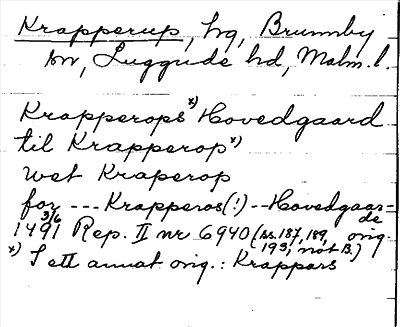 Krapperup, hg, Brunnby
sn, Luggude hd, Malm. l.
Krapperops *) Hovedgaard
til Krapperop *)
wet Kraperop
for --- Krapperos(!) -- Hovedgaar-
de
1491 3/6 Rep. II nr 6940 (ss. 187, 189, orig.
193, not B.)
*) I ett annat orig.: Krappars